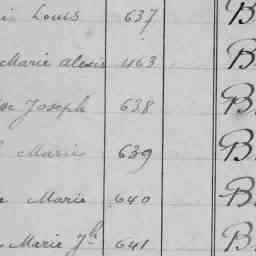 is Louis 637 B
Marie Alexis 463 B
Joseph 638 B
Marie 639 B
e Marie 640 B
Marie Jh 641 B